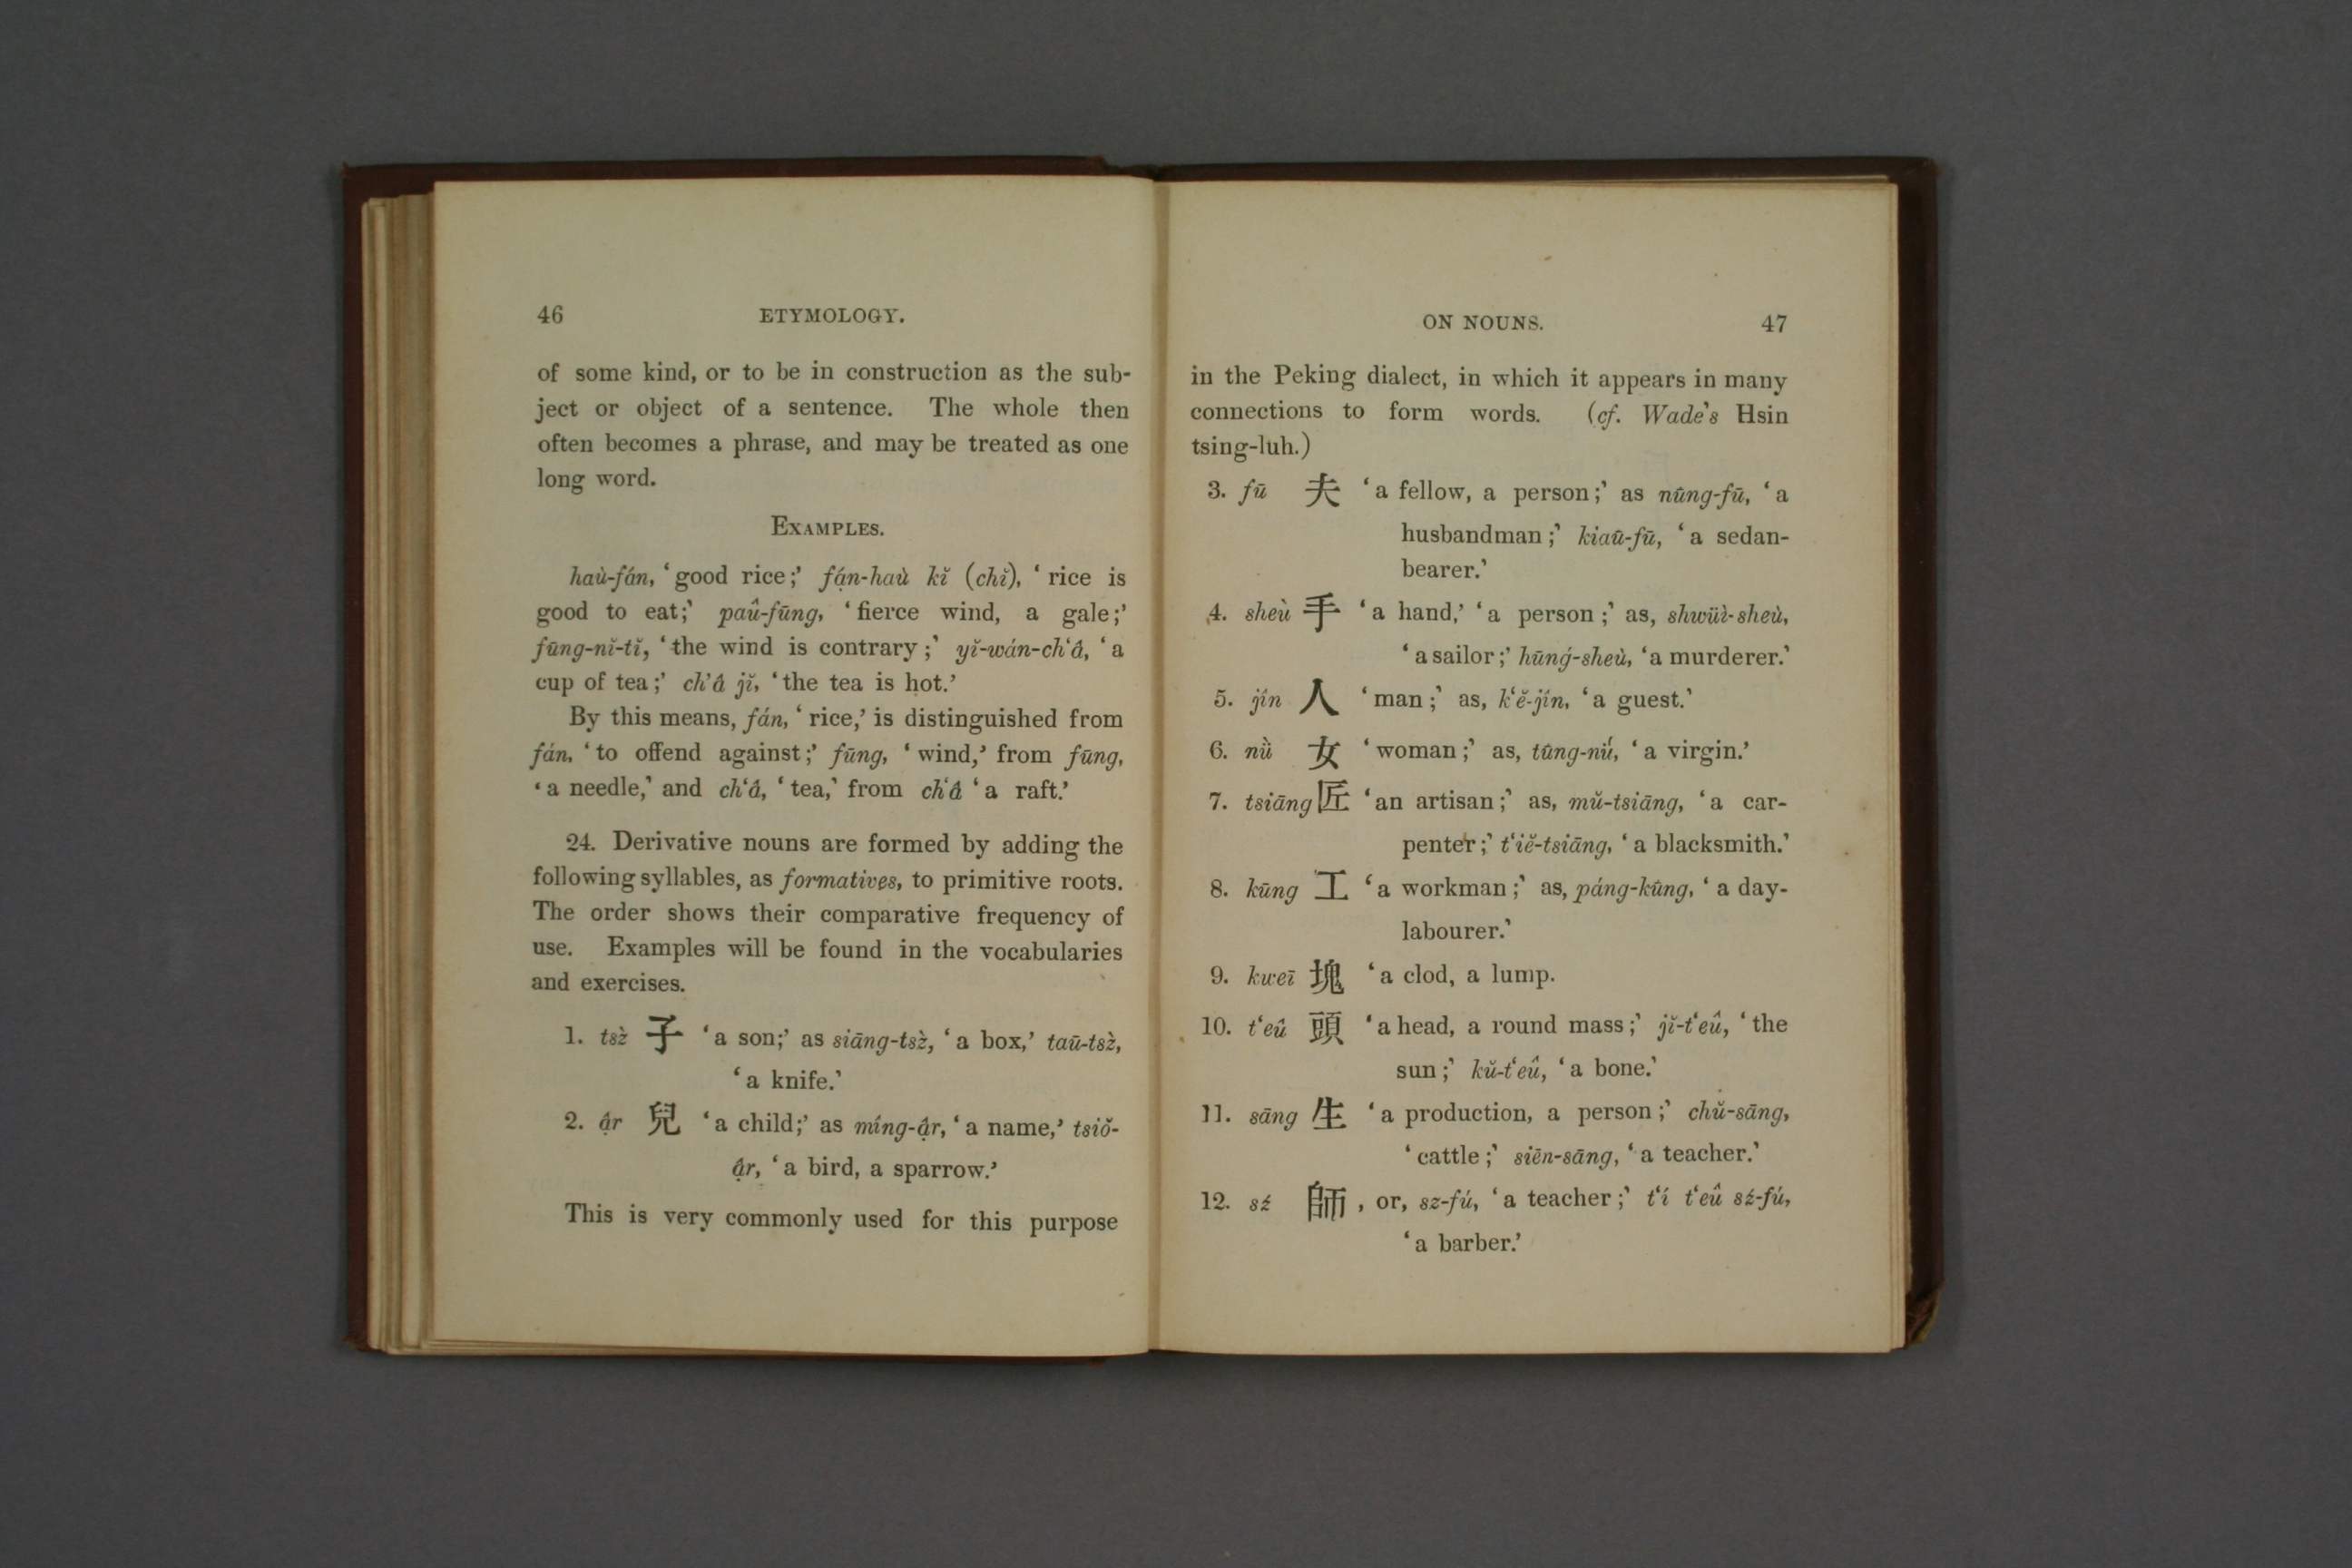 46 ETYMOLOGY.
of some kind, or to be in construction as the sub-
ject or object of a sentence. The whole then
often becomes a phrase, and may be treated as one
long word.
EXAMPLES.
haù-fán, ‘good rice;’ fạ́n-haù kĭ (chĭ), ‘rice is
good to eat;’ paû-fūng, ‘fierce wind, a gale;’
fūng-nĭ-tĭ, ‘the wind is contrary;’ yĭ-wán-ch‘â, ‘a
cup of tea;’ ch’â jĭ, ‘the tea is hot.’
By this means, fán, ‘rice,’ is distinguished from
fán, ‘to offend against;’ fūng, ‘wind,’ from fūng,
‘a needle,’ and ch‘â, ‘tea,’ from ch‘â ‘a raft.’
24. Derivative nouns are formed by adding the
following syllables, as formatives, to primitive roots.
The order shows their comparative frequency of
use. Examples will be found in the vocabularies
and exercises.
1. tsz̀ 子 ‘a son;’ as siāng-tsz̀, ‘a box,’ taū-tsz̀,
‘a knife.’
2. ậr 兒 ‘a child;’ as míng-ậr, ‘a name,’ tsiŏ-
ậr, ‘a bird, a sparrow.’
This is very commonly used for this purpose
ON NOUNS. 47
in the Peking dialect, in which it appears in many
connections to form words. (cf. Wade's Hsin
tsing-luh.)
3. fū 夫 ‘a fellow, a person;’ as nûng-fū, ‘a
husbandman;’ kiaū-fū, ‘a sedan-
bearer.’
4. sheù 手 ‘a hand,’ ‘a person;’ as, shwüì-sheù,
‘a sailor;’ hūng-sheù, ‘a murderer.’
5. jín 人 ‘man;’ as, k‘ĕ-jín, ‘a guest.’
6. nǜ 女 ‘woman;’ as, tûng-nǘ, ‘a virgin.’
7. tsiāng 匠 ‘an artisan;’ as, mŭ-tsiāng, ‘a car-
penter;’ t‘iĕ-tsiāng, ‘a blacksmith.’
8. kūng 工 ‘a workman;’ as, páng-kûng, ‘a day-
labourer.’
9. kweī 塊 ‘a clod, a lump.
10. t‘eû 頭 ‘a head, a round mass;’ jĭ-t‘eû, ‘the
sun;’ kŭ-t‘eû, ‘a bone.’
11. sāng 生 ‘a production, a person;’ chŭ-sāng,
‘cattle;’ siēn-sāng, ‘a teacher.’
12. sź 師, or, sz-fú, ‘a teacher;’ t‘í t‘eû sź-fú,
‘a barber.’